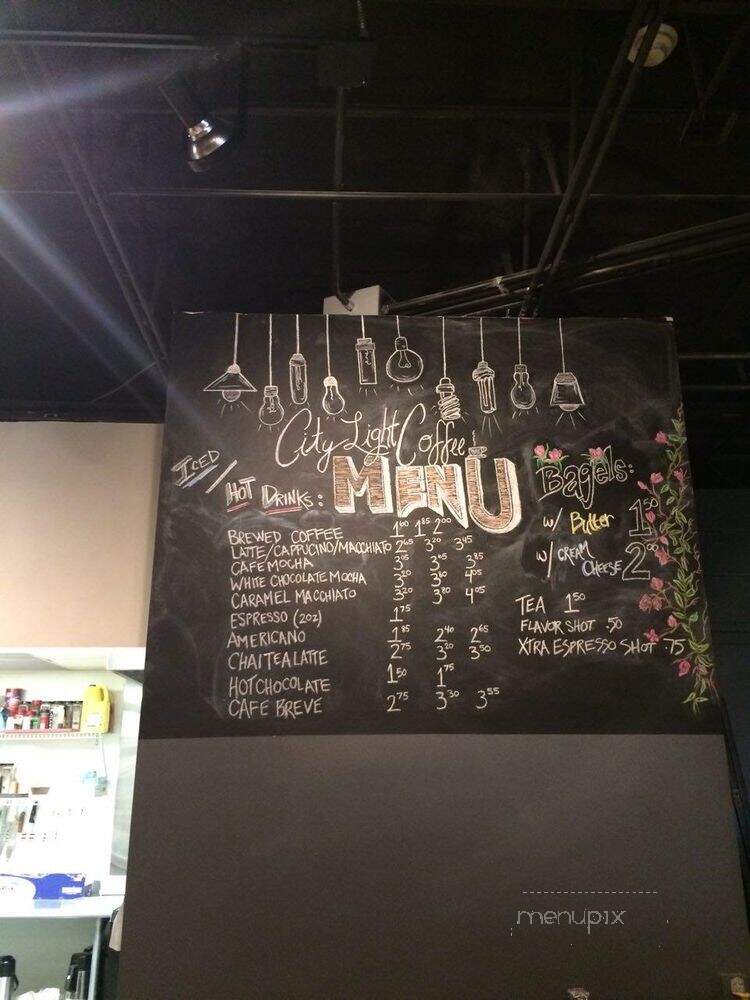 City Light Coffee
MENU
ICED / HOT DRINKS:
BREWED COFFEE 1.60 1.85 2.00
LATTE/CAPPUCINO/MACCHIATO 2.65 3.20 3.45
CAFE MOCHA 3.05 3.65 3.85
WHITE CHOCOLATE MOCHA 3.20 3.80 4.05
CARAMEL MACCHIATO 3.20 3.80 4.05
ESPRESSO (2oz) 1.75
AMERICANO 1.85 2.40 2.65
CHAI TEA LATTE 2.75 3.20 3.50
HOT CHOCOLATE 1.50 1.75
CAFE BREVE 2.75 3.30 3.55
Bagels:
w/ Butter 1.50
w/ CREAM CHEESE 2.00
TEA 1.50
FLAVOR SHOT .50
XTRA ESPRESSO SHOT .75
menupix